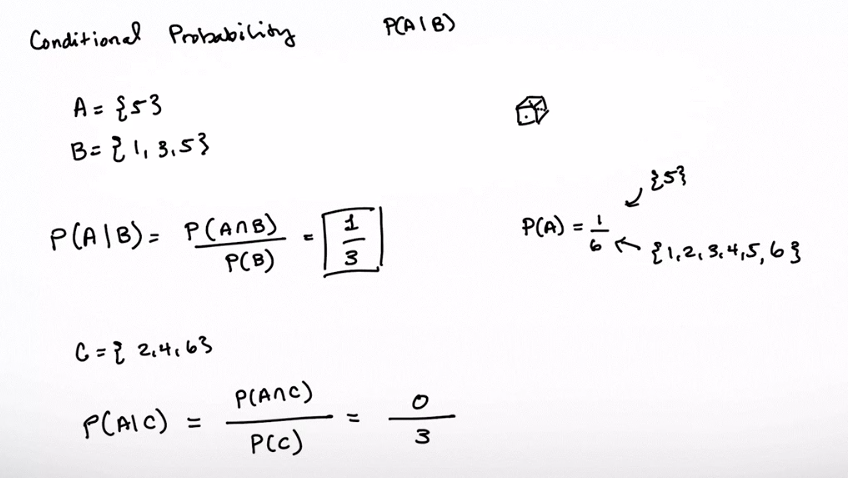 Conditional Probability P(A|B)
A = {5}
B = {1, 3, 5}
{5}
P(A|B) = P(A∩B) / P(B) = 1/3
P(A) = 1/6
{1, 2, 3, 4, 5, 6}
C = { 2, 4, 6}
P(A|C) = P(A∩C) / P(C) = 0/3